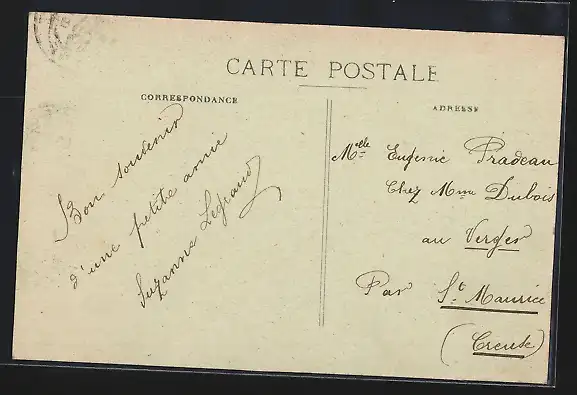 CARTE POSTALE
CORRESPONDANCE
Bon souvenir
d'une petite amie
Suzanne Legrand
ADRESSE
Melle Eugenie Pradeau
Chez Mme Dubois
au Verges
Par St. Maurice
(Creuse)